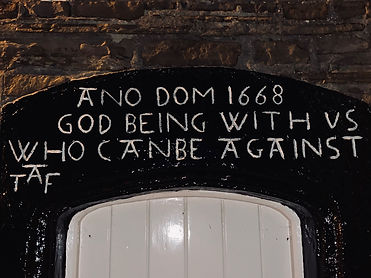 ANO DOM 1668
GOD BEING WITH VS
WHO CANBE AGAINST
TAF